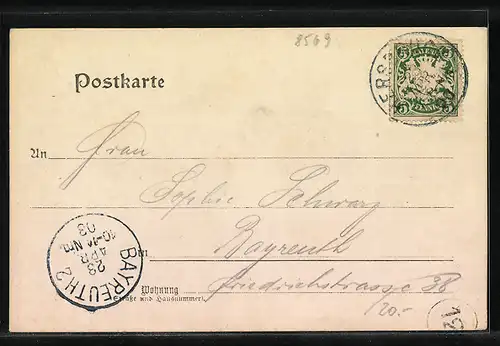 8569
BAYERN
5 5
PFENNIG
Postkarte
An Frau
Sophie Schwarz
in Bayreuth
Wohnung Friedrichstrasse 38
(Straße und Hausnummer).
20.-
BAYREUTH 2
23
APR.
10-11 Nm.
03